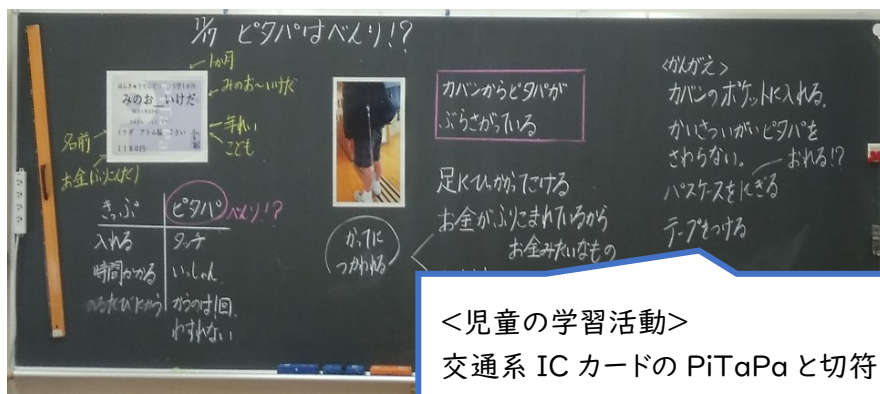 11/17 ピタパはべんり!?
1か月
みのお〜いけだ
みのお いけだ
名前
年れい
こども
お金(ふりこんだ)
1180円
きっぷ
ピタパ
べんり!?
入れる
タッチ
時間かかる
いっしゅん
のるたびにかう
かうのは1回
わすれない
かってに
つかわれる
カバンからピタパが
ぶらさがっている
足にひっかかってこける
お金がふりこまれているから
お金みたいなもの
<かんがえ>
カバンのポケットに入れる。
かいさついがいピタパを
さわらない。
おれる!?
パスケースをにぎる
テープをつける
<児童の学習活動>
交通系 IC カードの PiTaPa と切符